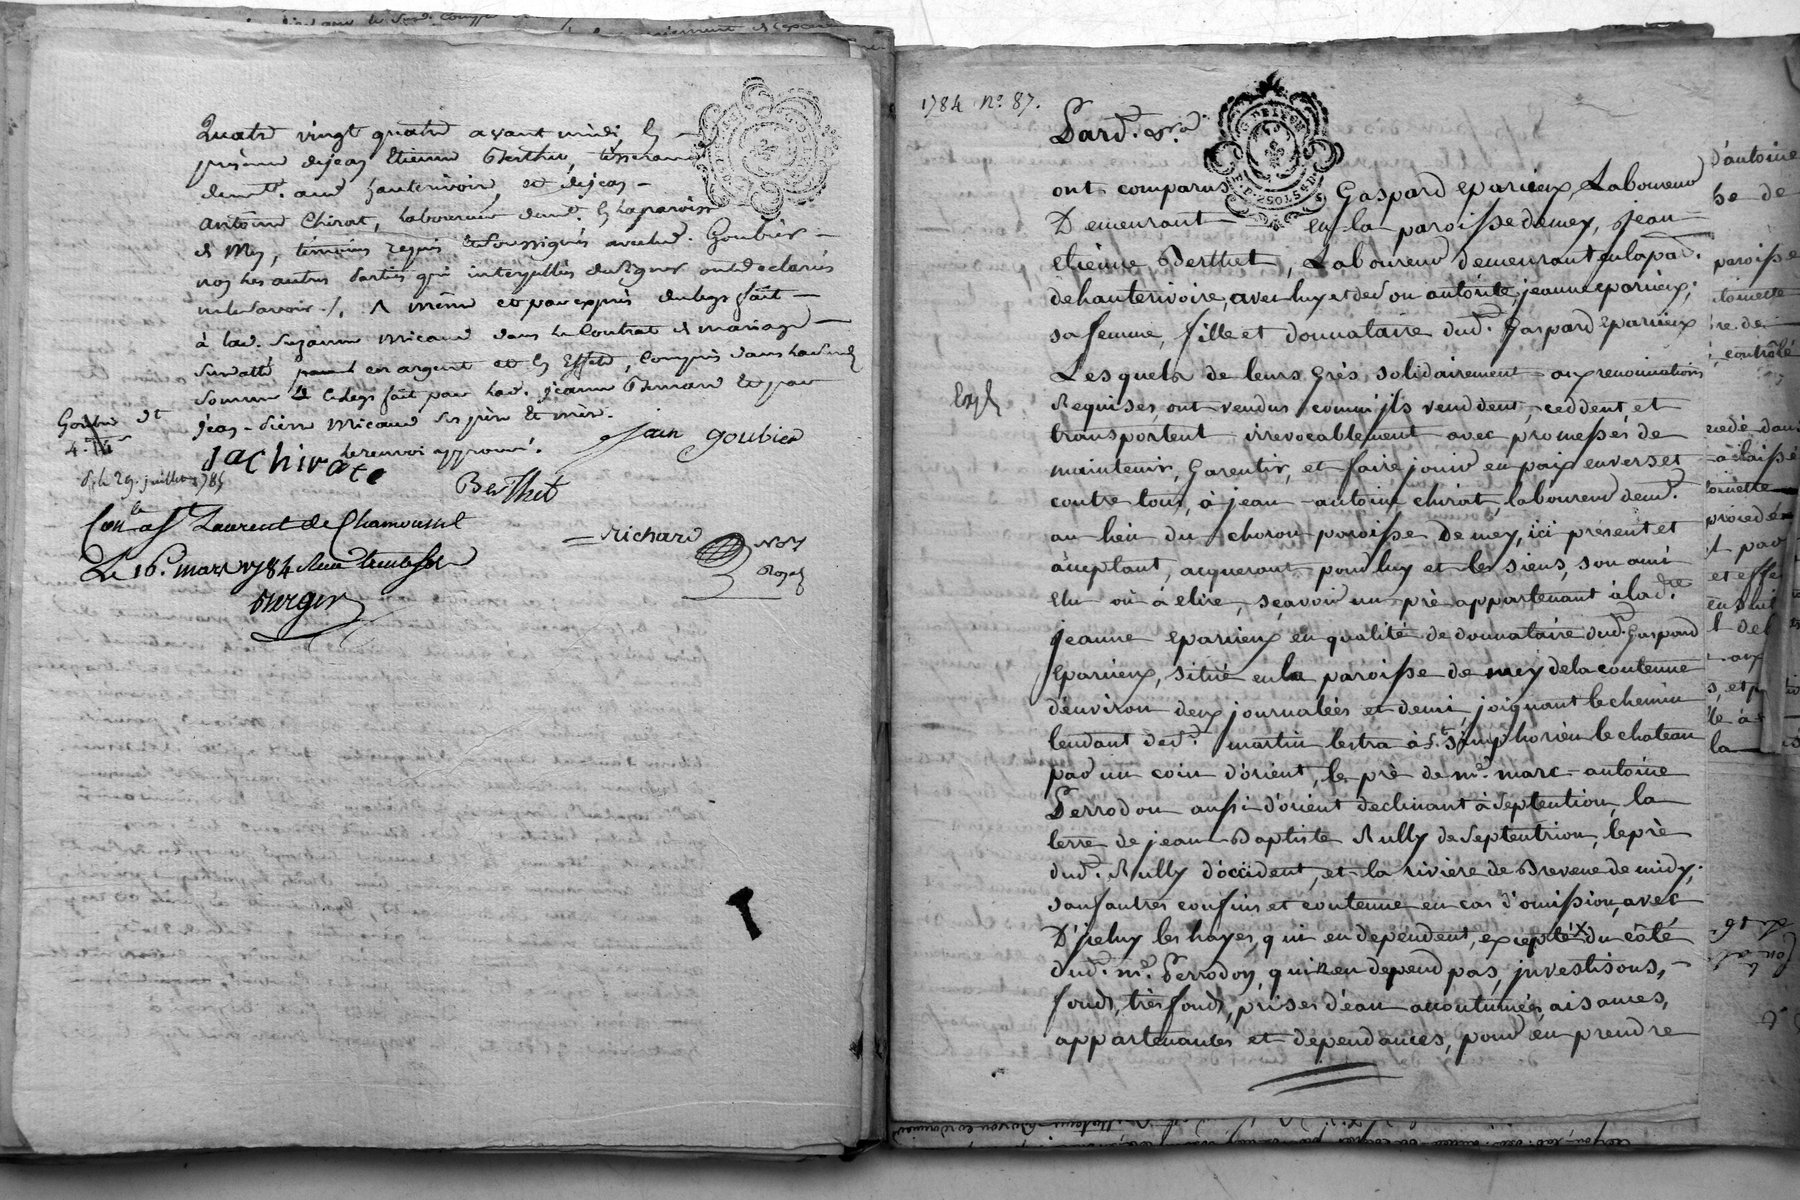 Quatre vingt quatre avant midi, En
présence de jean Etienne Berthet, tisserand
demt. aud hauterivoire, et de jean
Antoine Chirat, laboureur demt. En la paroisse
de Mey, témoins requis et soussignés avec led. Goubier
non les autres parties qui interpellés de signer ont déclarés
ne le savoir ./. \ même et par exprès du legs fait
à lad. Suzanne Micaud dans le Contrat de mariage
surdatté en argent et En Effets, compris dans lad.
somme le legs fait par lad. jeanne et par
jean-pierre Micaud ses père et mère.
le renvoi approuvé.
jean goubier
jAChirat
Berthet
Richard
Not
Royal
Goubier
d. le 29. juillet 1785
Con.lé a St Laurent de Chamousset
Le 16. mars 1784
1784 n.° 87.
Pard.
G. DE LYON
ont comparus Gaspard eparieux, Laboureur
Demeurant en la paroisse de mey, jean
etienne Berthet, Laboureur demeurant en la par.
de hauterivoire, avec luy et de son autorité, jeanne eparieux,
sa femme, fille et donnataire dud. Gaspard eparieux
Lesquels de leurs grés solidairement aux renonciations
Requises, ont vendus comm'ils venddent, ceddent et
transportent irrevocablement avec promesses de
maintenir, garentir, et faire jouir en paix envers et
contre tous, à jean-antoine chirat, laboureur demt.
au lieu du choron paroisse de mey, ici présent et
acceptant, acquerant pour luy et les siens, son ami
elu ou à elire, sçavoir un pré appartenant à lad.te
jeanne eparieux en qualité de donnataire dud. Gaspard
Eparieux, situé en la paroisse de mey de la contenue
d'environ deux journalées et demi, joignant le chemin
tendant de st. martin lestra à st. simphorien le chateau
par un coin d'orient, le pré de me. marc-antoine
Perrodon aussi d'orient declinant à septention, la
terre de jean-Baptiste Rully de septentrion, le pré
dud. Rully d'occident, et la riviere de Brevene de midy,
sauf autres confins et contenue en cas d'omission, avec
D'jceluy les hayes, qui en dépendent, excepté x du côté
dud. me. Perrodon, qui n'en depend pas, jnvestisons,
fonds, très fonds, prises d'eau accoutumées, aisances,
appartenantes et dependances, pour en prendre
d'antoine
paroisse
controlé